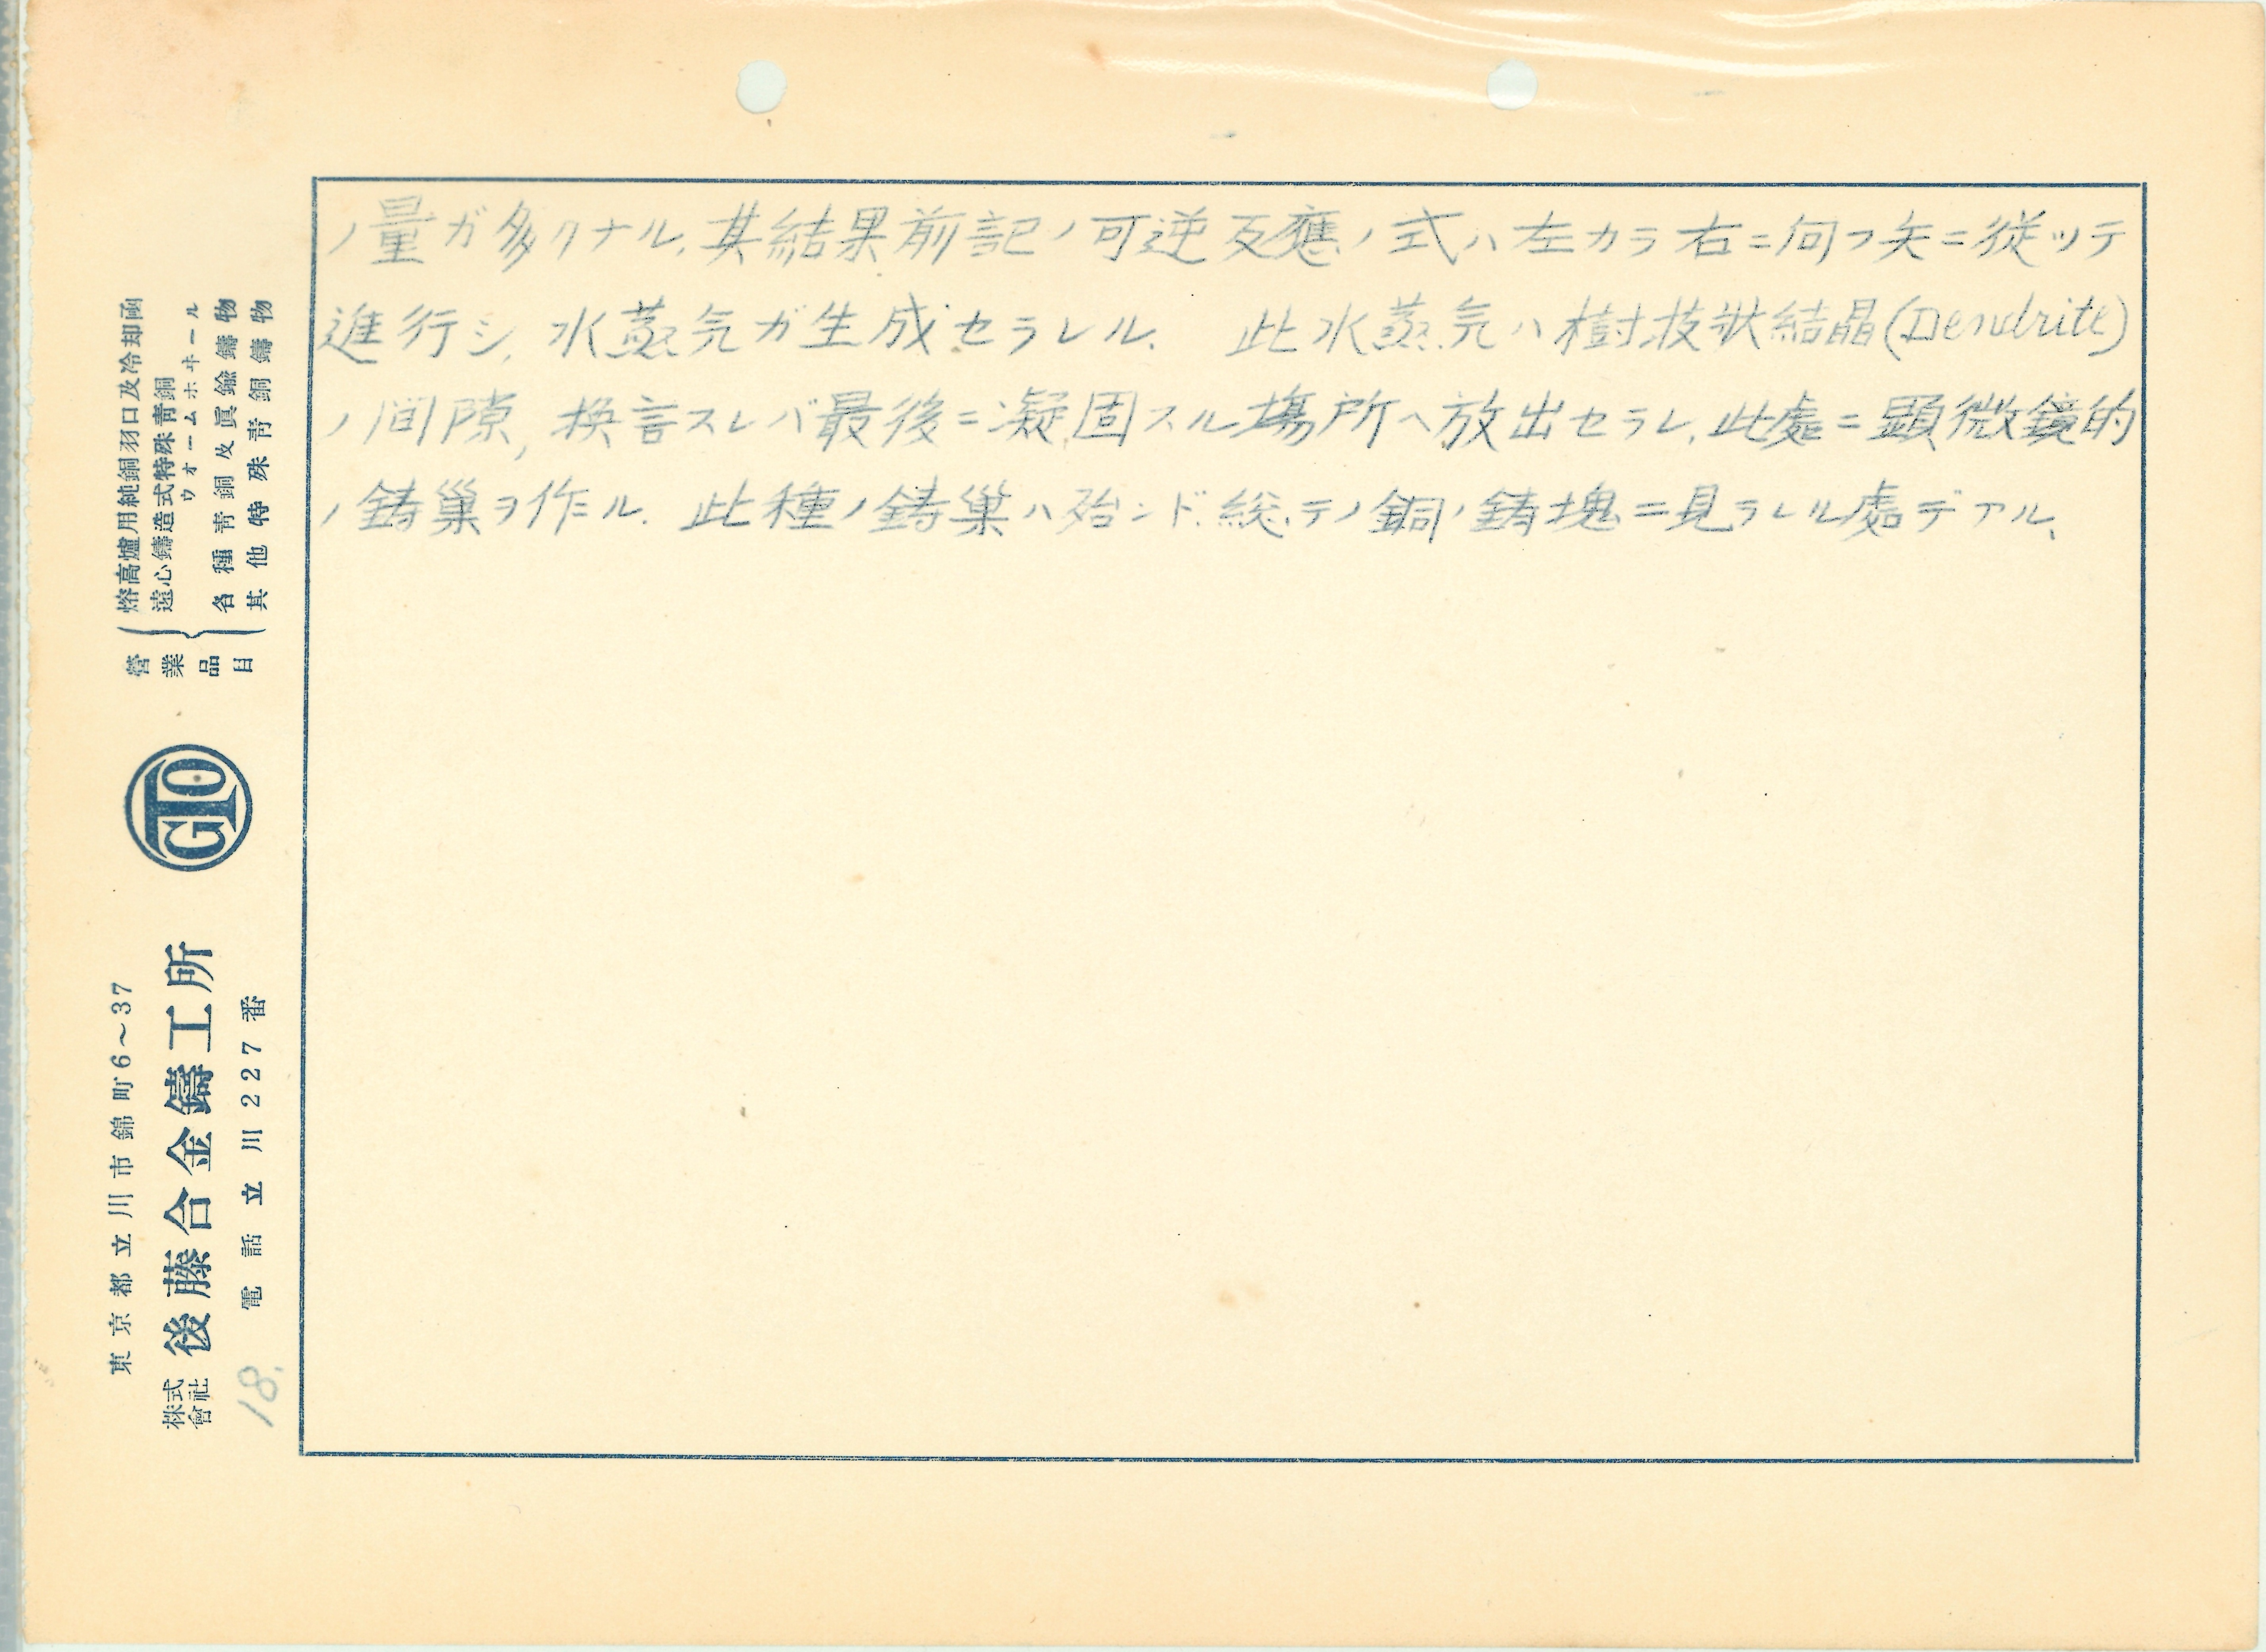 ノ量ガ多クナル、其結果前記ノ可逆反應ノ式ハ左カラ右ニ向フ矢ニ従ツテ
進行シ、水蒸気ガ生成セラレル. 此水蒸気ハ樹枝状結晶(Dendrite)
ノ间隙, 換言スレバ最後ニ凝固スル場所ヘ放出セラレ、此處ニ顕微鏡的
ノ鋳巣ヲ作ル. 此種ノ鋳巣ハ殆ンド総テノ銅ノ鋳塊ニ見ラレル處デアル.
東京都立川市錦町6～37
株式會社 後藤合金鑄工所
電話立川227番
18.
GTO
營業品目
熔高爐用純銅羽口及冷却函
遠心鑄造式特殊靑銅
ウオームホヰール
各種靑銅及眞鍮鑄物
其他特殊靑銅鑄物